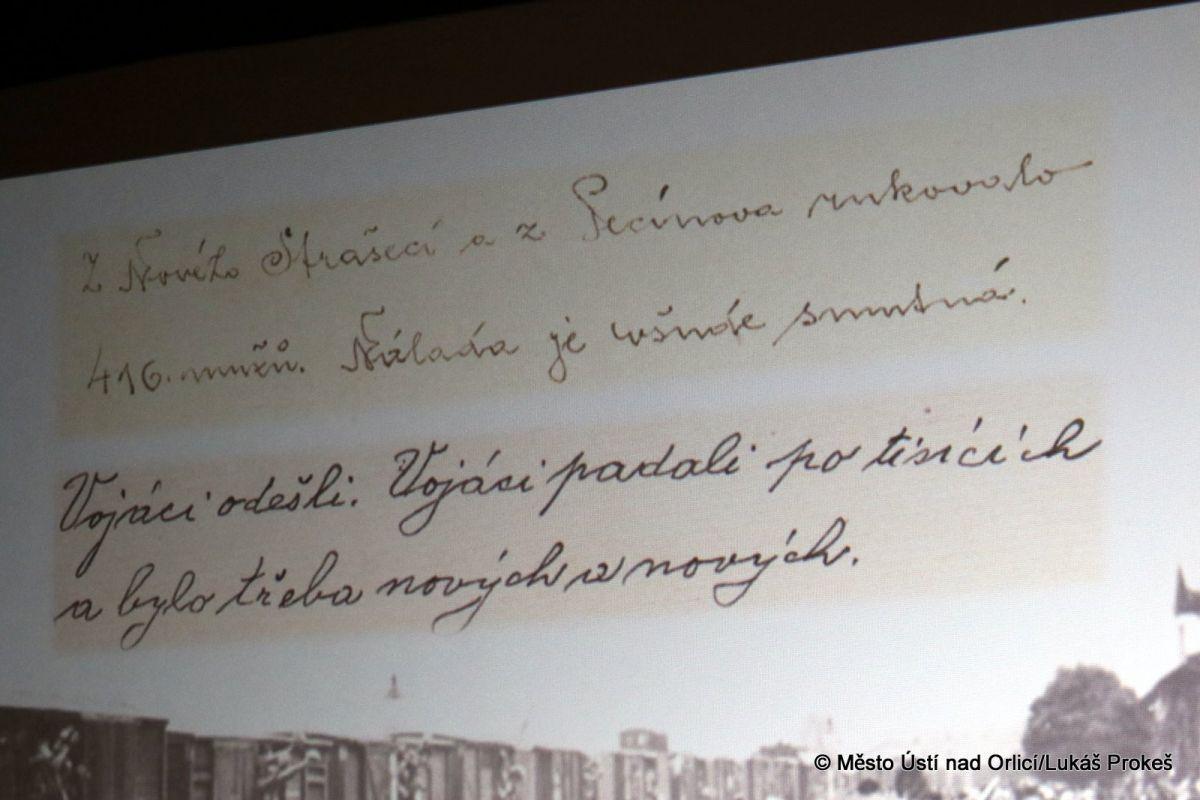 Z Nového Strašecí a z Pecínova rukovalo
416. mužů. Nálada je všude smutná.
Vojáci odešli. Vojáci padali po tisících
a bylo třeba nových a nových.
© Město Ústí nad Orlicí/Lukáš Prokeš